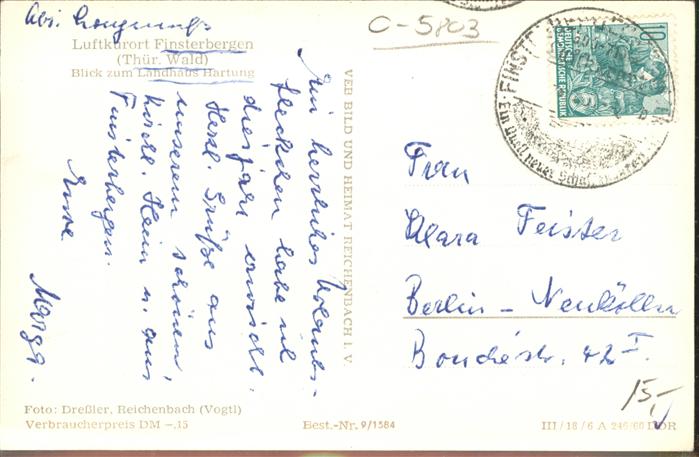 C-5803
Luftkurort Finsterbergen
(Thür. Wald)
Blick zum Landhaus Hartung
Ein herrliches Urlaubs-
fleckchen habe ich
dies Jahr erwischt.
Herzl. Grüße aus
unserem schönen,
kirchl. Heim u. aus
Finsterbergen.
VEB BILD UND HEIMAT REICHENBACH I. V.
10
DEUTSCHE
DEMOKRATISCHE REPUBLIK
FINSTERBERGEN
Frau
Klara Feister
Berlin - Neukölln
Bouchéstr. 42 I.
15,-
Foto: Dreßler, Reichenbach (Vogtl)
Verbraucherpreis DM -,15
Best.-Nr. 9/1584
III/18/6 A 246/60 DDR